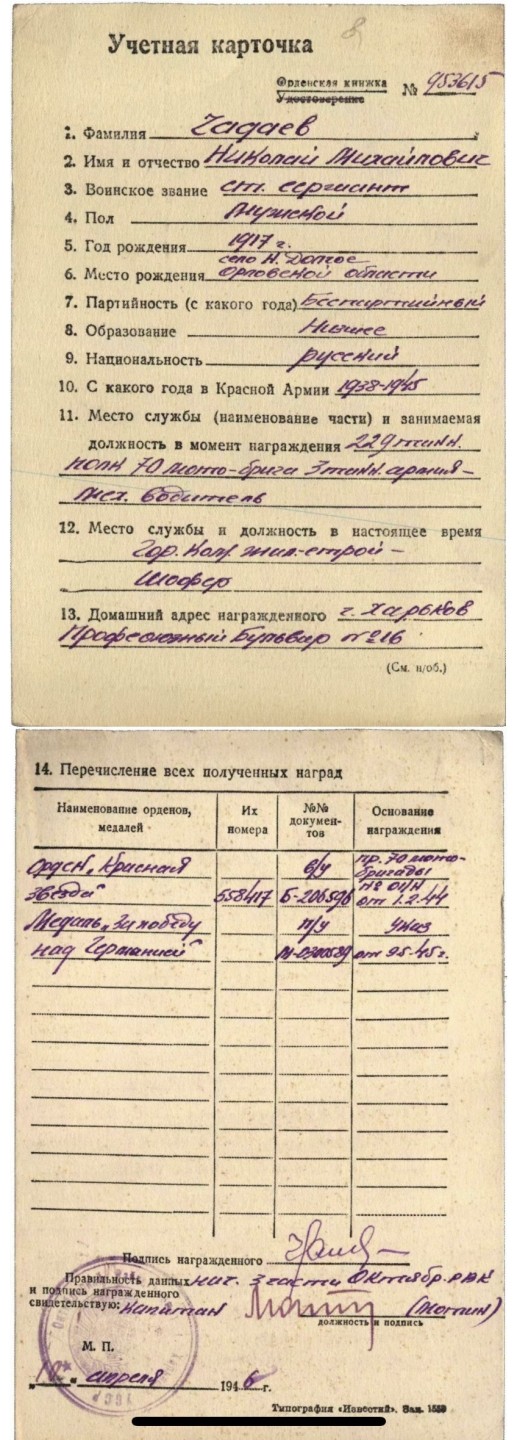 Учетная карточка
Орденская книжка
Удостоверение № 953615
1. Фамилия Чадаев
2. Имя и отчество Николай Михайлович
3. Воинское звание ст. сержант
4. Пол Мужской
5. Год рождения 1917 г.
село Н. Долгое
6. Место рождения Орловской области
7. Партийность (с какого года) Беспартийный
8. Образование Низшее
9. Национальность русский
10. С какого года в Красной Армии 1938-1945
11. Место службы (наименование части) и занимаемая
должность в момент награждения 229 танк.
полк 70 мото-брига 3 танк. армия –
мех. водитель
12. Место службы и должность в настоящее время
Гор. жил-строй –
Шофер
13. Домашний адрес награжденного г. Харьков
Професоюзный Бульвар №16
(См. н/об.)
14. Перечисление всех полученных наград
Наименование орденов, медалей Их номера №№ документов Основание награждения
пр. 70 мото-
Орден „Красная в/у бригады
звезда" 558417 Б-206596 № 01/Н от 1.2.44
Медаль „За победу п/у Указ
над Германией" от 9.5.45 г.
Подпись награжденного
Правильность данных нач. 3 части Октябр. РВК
и подпись награжденного
свидетельствую: капитан (Мотин)
должность и подпись
М. П.
апреля 1946 г.
Типография «Известий». Зак. 1559